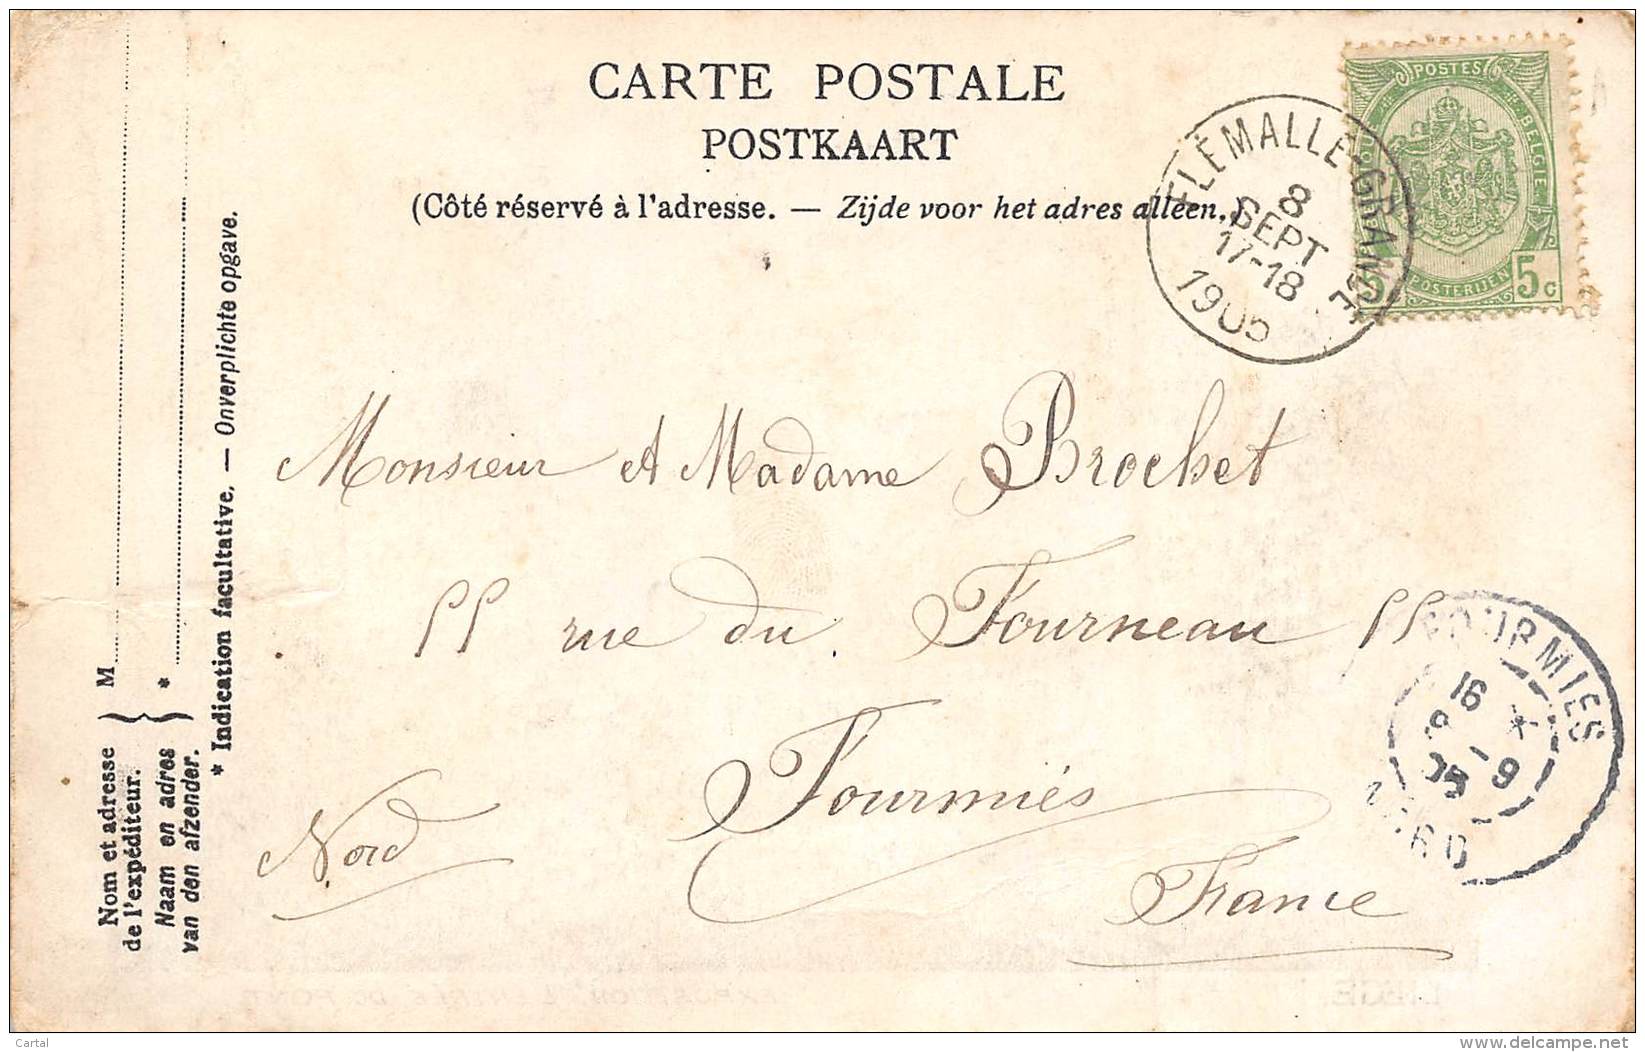 CARTE POSTALE
POSTKAART
(Côté réservé à l'adresse. — Zijde voor het adres alleen.)
POSTES
BELGIE
POSTERIJEN
5 5 c
FLÉMALLE-GRANDE
8
SEPT
17-18
1905
Monsieur et Madame Brochet
rue du Fourneau
Fourmiés
Nord
France
FOURMIES
16
9
05
NORD
Nom et adresse
de l'expéditeur.
Naam en adres
van den afzender.
M
*
* Indication facultative. — Onverplichte opgave.
Cartal
www.delcampe.net